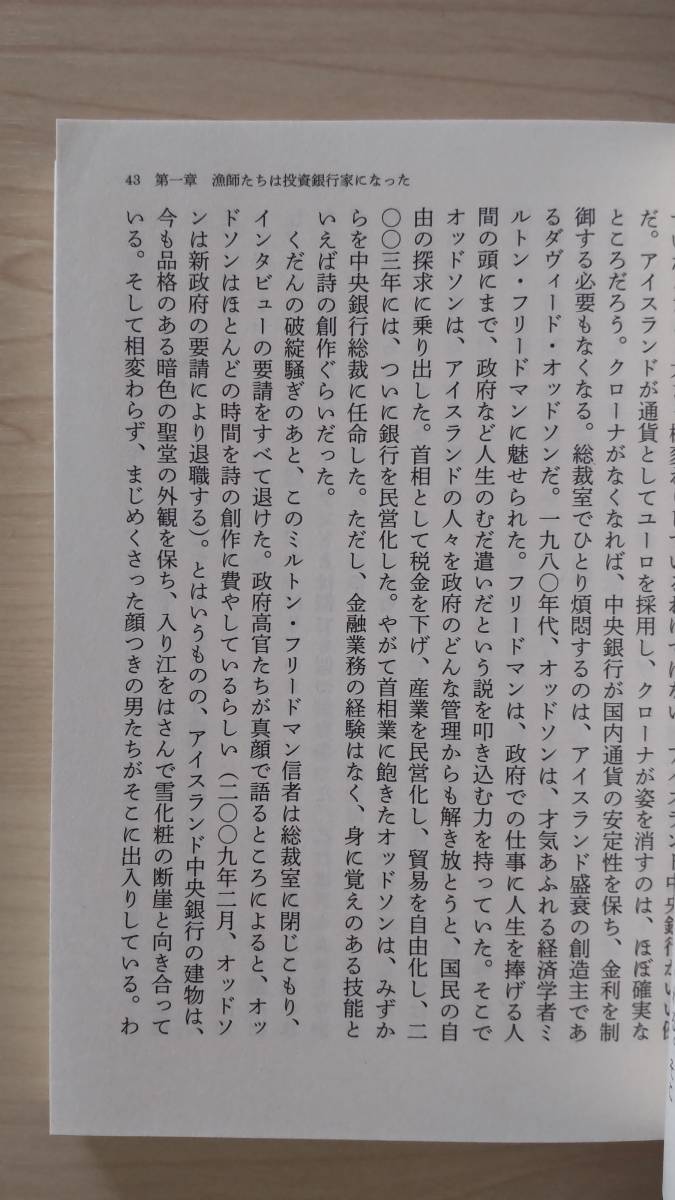 43 第一章 漁師たちは投資銀行家になった
だ。アイスランドが通貨としてユーロを採用し、クローナが姿を消すのは、ほぼ確実な
ところだろう。クローナがなくなれば、中央銀行が国内通貨の安定性を保ち、金利を制
御する必要もなくなる。総裁室でひとり煩悶するのは、アイスランド盛衰の創造主であ
るダヴィード・オッドソンだ。一九八〇年代、オッドソンは、才気あふれる経済学者ミ
ルトン・フリードマンに魅せられた。フリードマンは、政府での仕事に人生を捧げる人
間の頭にまで、政府など人生のむだ遣いだという説を叩き込む力を持っていた。そこで
オッドソンは、アイスランドの人々を政府のどんな管理からも解き放とうと、国民の自
由の探求に乗り出した。首相として税金を下げ、産業を民営化し、貿易を自由化し、二
〇〇三年には、ついに銀行を民営化した。やがて首相業に飽きたオッドソンは、みずか
らを中央銀行総裁に任命した。ただし、金融業務の経験はなく、身に覚えのある技能と
いえば詩の創作ぐらいだった。
くだんの破綻騒ぎのあと、このミルトン・フリードマン信者は総裁室に閉じこもり、
インタビューの要請をすべて退けた。政府高官たちが真顔で語るところによると、オッ
ドソンはほとんどの時間を詩の創作に費やしているらしい（二〇〇九年二月、オッドソ
ンは新政府の要請により退職する）。とはいうものの、アイスランド中央銀行の建物は、
今も品格のある暗色の聖堂の外観を保ち、入り江をはさんで雪化粧の断崖と向き合って
いる。そして相変わらず、まじめくさった顔つきの男たちがそこに出入りしている。わ